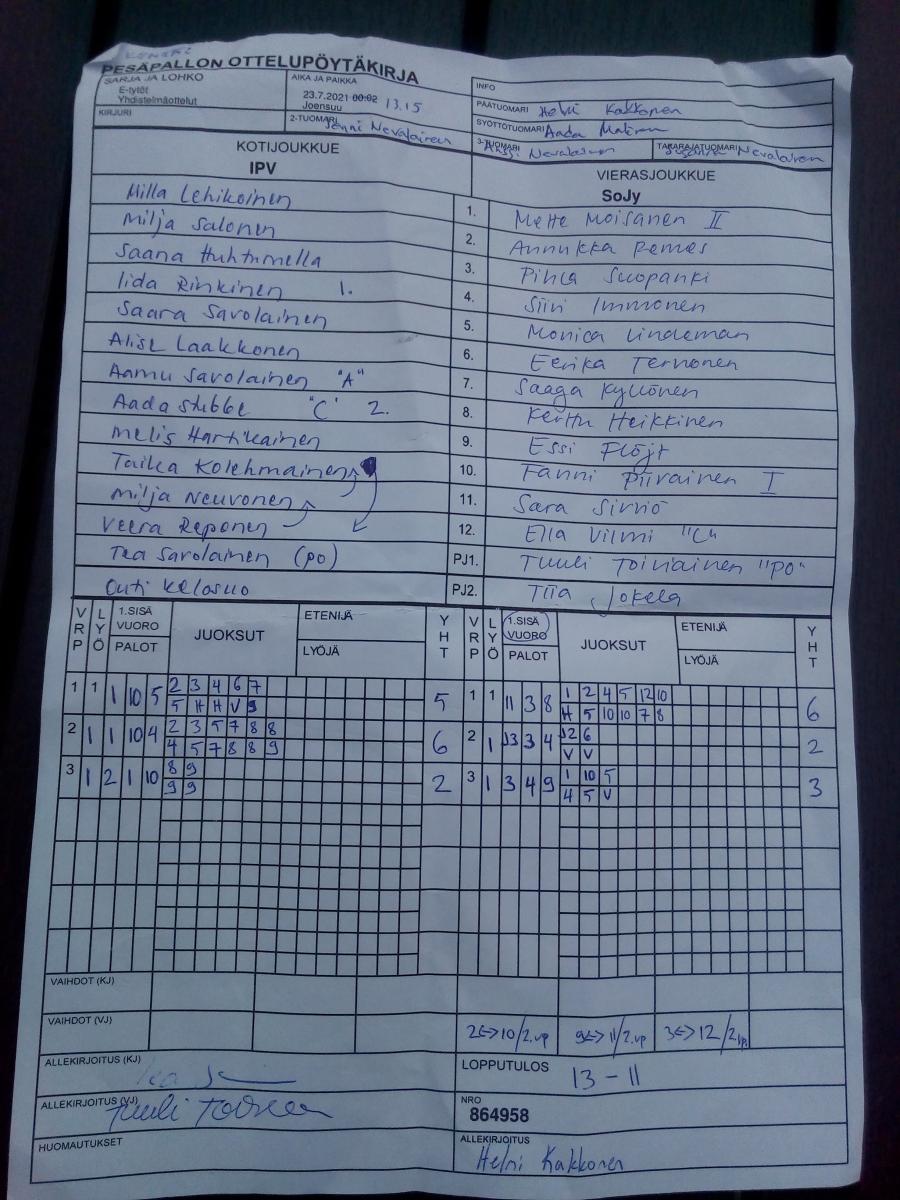 PESÄPALLON OTTELUPÖYTÄKIRJA
SARJA JA LOHKO
E-tytöt
Yhdistelmäottelut
AIKA JA PAIKKA
23.7.2021 00:02 13.15
Joensuu
INFO
PÄÄTUOMARI Helni Kakkonen
KIRJURI
2-TUOMARI Jenni Nevalainen
SYÖTTÖTUOMARI Aada
3-TUOMARI Anssi Nevalainen
TAKARAJATUOMARI Nevalainen
KOTIJOUKKUE
IPV
VIERASJOUKKUE
SoJy
Milla Lehikoinen 1. Mette Moisanen II
Milja Salonen 2. Annukka Remes
Saana Huhtamella 3. Pihla Suopanki
Iida Rinkinen 1. 4. Siiri Immonen
Saara Savolainen 5. Monica Lindeman
Alise Laakkonen 6. Eerika Ternonen
Aamu Savolainen "A" 7. Saaga Kyllönen
Aada Stubbe "C" 2. 8. Kerttu Heikkinen
Melis Hartikainen 9. Essi Flöjt
Taika Kolehmainen 10. Fanni Piirainen I
Milja Neuvonen 11. Sara Sirviö
Veera Reponen 12. Ella Vilmi "C"
Tea Savolainen (po) PJ1. Tuuli Toiviainen "PO"
Outi Kelosuo PJ2. Tiia Jokela
VRP LYÖ 1.SISÄ VUORO PALOT JUOKSUT ETENIJÄ LYÖJÄ YHT VRP LYÖ 1.SISÄ VUORO PALOT JUOKSUT ETENIJÄ LYÖJÄ YHT
1 1 1 10 5 2 3 4 6 7 5 1 1 11 3 8 1 2 4 5 12 10 6
5 H H V 9 H 5 10 10 7 8
2 1 1 10 4 2 3 5 7 8 8 6 2 1 3 3 4 12 6 2
4 5 7 8 8 9 V V
3 1 2 1 10 8 9 2 3 1 3 4 9 1 10 5 3
9 9 4 5 V
VAIHDOT (KJ)
VAIHDOT (VJ) 2<->10/2.vp 9<->11/2.vp 3<->12/2vp.
ALLEKIRJOITUS (KJ)
LOPPUTULOS 13 - 11
ALLEKIRJOITUS (VJ) Tuuli Toiviainen
NRO
864958
HUOMAUTUKSET
ALLEKIRJOITUS
Helni Kakkonen